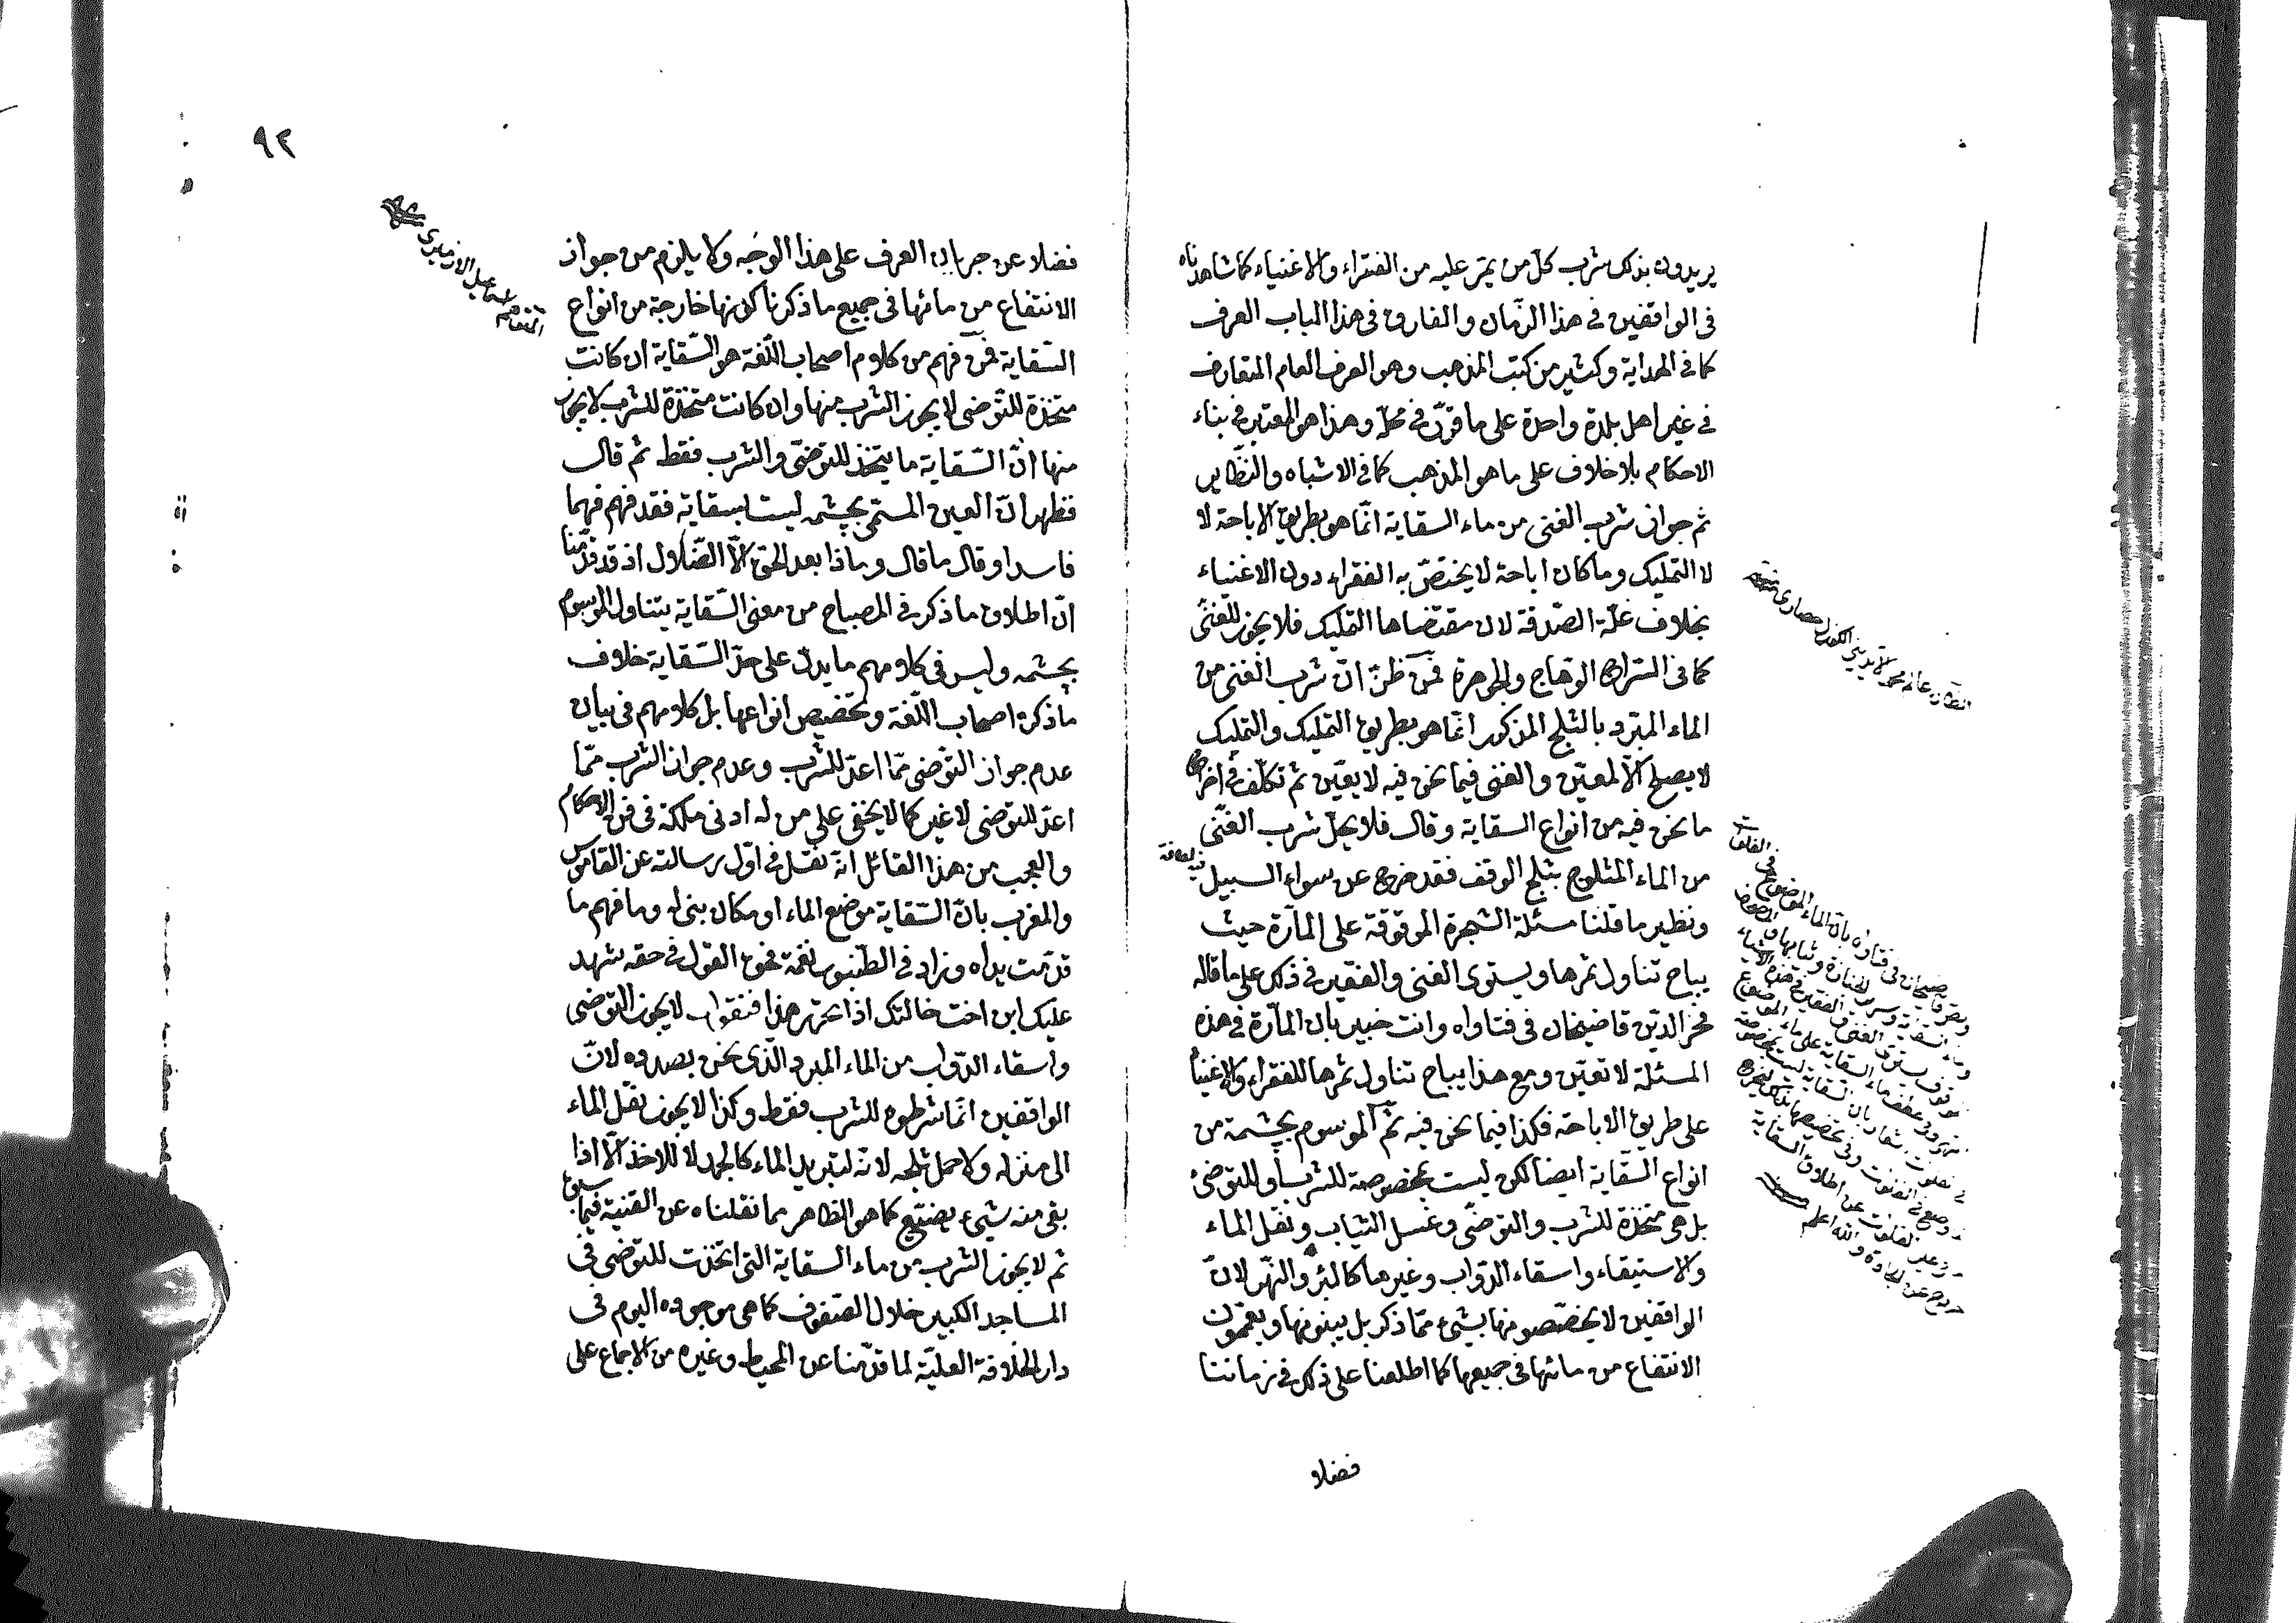 يريدون بذلك شرب كلّ من يمرّ عليه من الفقراء والاغنياء كما شاهدناه
فى الواقفين فى هذا الزّمان والفارق فى هذا الباب العرف
كما فى الهداية وكثير من كتب المذهب وهو العرف العام المتعارف
فى غير اهل بلدة واحدة على ما قرّر فى محلّه وهذا هو المعتبر فى بناء
الاحكام بلا خلاف على ما هو المذهب كما فى الاشباه والنظّاير
ثم جواز شرب الغنى من ماء السقاية انّما هو بطريق الاباحة لا
لا التمليك وما كان اباحة لا يختصّ به الفقراء دون الاغنياء
بخلاف غلّة الصّدقة لان مقتضاها التمليك فلا يجوز للغنىّ
كما فى السّراج الوهّاج والجوهرة فمن ظنّ انّ شرب الغنى من
الماء المبرّد بالثلج المذكور انّما هو بطريق التمليك والتمليك
لا يصلح الّا لمعيّن والغنى فيما نحن فيه لا يعيّن ثم تكلّف فى اخراج
ما نحن فيه من انواع السقاية وقال فلا يحلّ شرب الغنّى
من الماء المثلوج بثلج الوقف فقد خرج عن سواء السبيل
ونظير ما قلنا مسئلة الشجرة الموقوقة على المارّة حيث
يباح تناول ثمرها ويستوى الغنى والفقير فى ذلك على ما قاله
فخر الديّن قاضيخان فى فتاواه وانت خبير بان المارّة فى هذه
المسئلة لا تعيّن ومع هذا يباح تناول ثمرها للفقراء والاغنياء
على طريق الاباحة فكذا فيما نحن فيه ثم الموسوم بچشمة من
انواع السقاية ايضا لكن ليست بمخصوصة للشرب او للتوضئ
بل هى متخذة للشرب والتوضّى وغسل الثياب ونقل الماء
والاستيقاء واسقاء الدوّاب وغيرها كالبئر والنهّر لانّ
الواقفين لا يخصّصونها بشئ ممّا ذكر بل يبنونها ويعمّمون
الانتفاع من مائها فى جميعها كما اطلعنا على ذلك فى زماننا
فضلا
٩٢
فضلا عن جريان العرف على هذا الوجه ولا يلزم من جواز
الانتفاع من مائها فى جميع ما ذكرنا كونها خارجة من انواع
السّقاية فمن فهم من كلام اصحاب اللّغة هو السّقاية ان كانت
متخذة للتّوضى لا يجوز الشرب منها وان كانت متخّذة للشرب لا يجوز
منها انّ السّقاية ما يتخّذ للتوضّى والشرب فقط ثم قال
فظهر انّ العين المسمّى بچشمه ليست بسقاية فقد فهم فهما
فاسدا وقال ما قال وماذا بعد الحق الّا الضّلال اذ قد قدّمنا
انّ اطلاق ما ذكر فى المصباح من معنى السّقاية يتناول الموسوم
بچشمه وليس فى كلامهم ما يدلّ على حدّ السّقاية خلاف
ما ذكره اصحاب اللّغة وتخصيص انواعها بل كلامهم فى بيان
عدم جواز التّوضى ممّا اعدّ للشرب وعدم جواز الشرب ممّا
اعدّ للتوضى لا غير كما لا يخفى على من له ادنى ملكة فى فن الاحكام
والعجب من هذا القائل انّه نقل فى اوّل رسالته عن القاموس
والمغرب بانّ السّقاية موضع الماء او مكان بنى له وما فهم ما
قدّمت يداه وزاد فى الطّنبور نغمة فحق القول فى حقه شهد
عليك ابن اخت خالتك اذا تحرّر هذا فنقول لا يجوز التّوضى
واسقاء الدّواب من الماء المبرد الّذى نحن بصدده لانّ
الواقفين انّما شرطوه للشرب فقط وكذا لا يجوز نقل الماء
الى منزله ولا حمل ثلجه لانّه لتبريد الماء كالجمد لا للاخذ الّا اذا
بقى منه شئ يضيّع كما هو الظاهر مما نقلناه عن القنية فيما سبق
ثم لا يجوز الشرب من ماء السقاية التى اتخذت للتوضى فى
المساجد الكبير خلال الصّفوف كما هى موجوده اليوم فى
دار الخلافة العليّة لما قدّمنا عن المحيط وغيره من الاجماع على